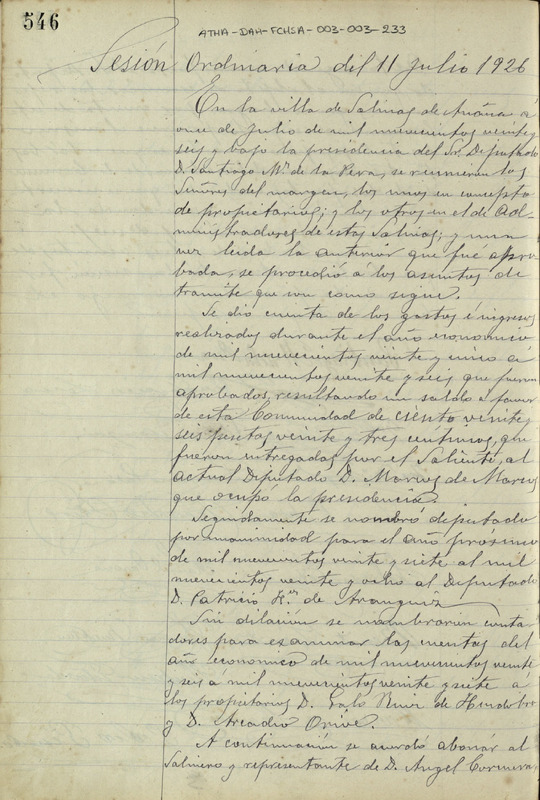 546
ATHA-DAH-FCHSA-003-003-233
Sesión Ordinaria del 11 Julio 1926
En la villa de Salinas de Añana á
once de Julio de mil novecientos veinte y
seis y bajo la presidencia del Sr. Diputado
D. Santiago Mª de la Pera, se reunieron los
Señores del margen, los unos en concepto
de propietarios; y los otros en el de Ad-
ministradores de estas Salinas; y una
vez leida la anterior que fué apro
bada, se procedió á los asuntos de
tramite que son como sigue.
Se dió cuenta de los gastos é ingresos
realizados durante el año economico
de mil novecientos veinte y cinco á
mil novecientos veinte y seis que fueron
aprobados, resultando un saldo á favor
de esta Comunidad de ciento veinte y
seis pesetas veinte y tres centimos, que
fueron entregadas por el Saliente, al
actual Diputado D. Marcos de Marcos
que ocupó la presidencia.
Seguidamente se nombró diputado
por unanimidad para el año próximo
de mil novecientos veinte y siete al mil
novecientos veinte y ocho al Diputado
D. Patricio H. de Aranguiz
Sin dilación se nombraron conta
dores para examinar las cuentas del
año economico de mil novecientos veinte
y seis á mil novecientos veinte y siete á
los propietarios D. Galo Ruiz de
y D. Arcadio Orive.
A continuación se acordó abonar al
Salinero y representante de D. Angel